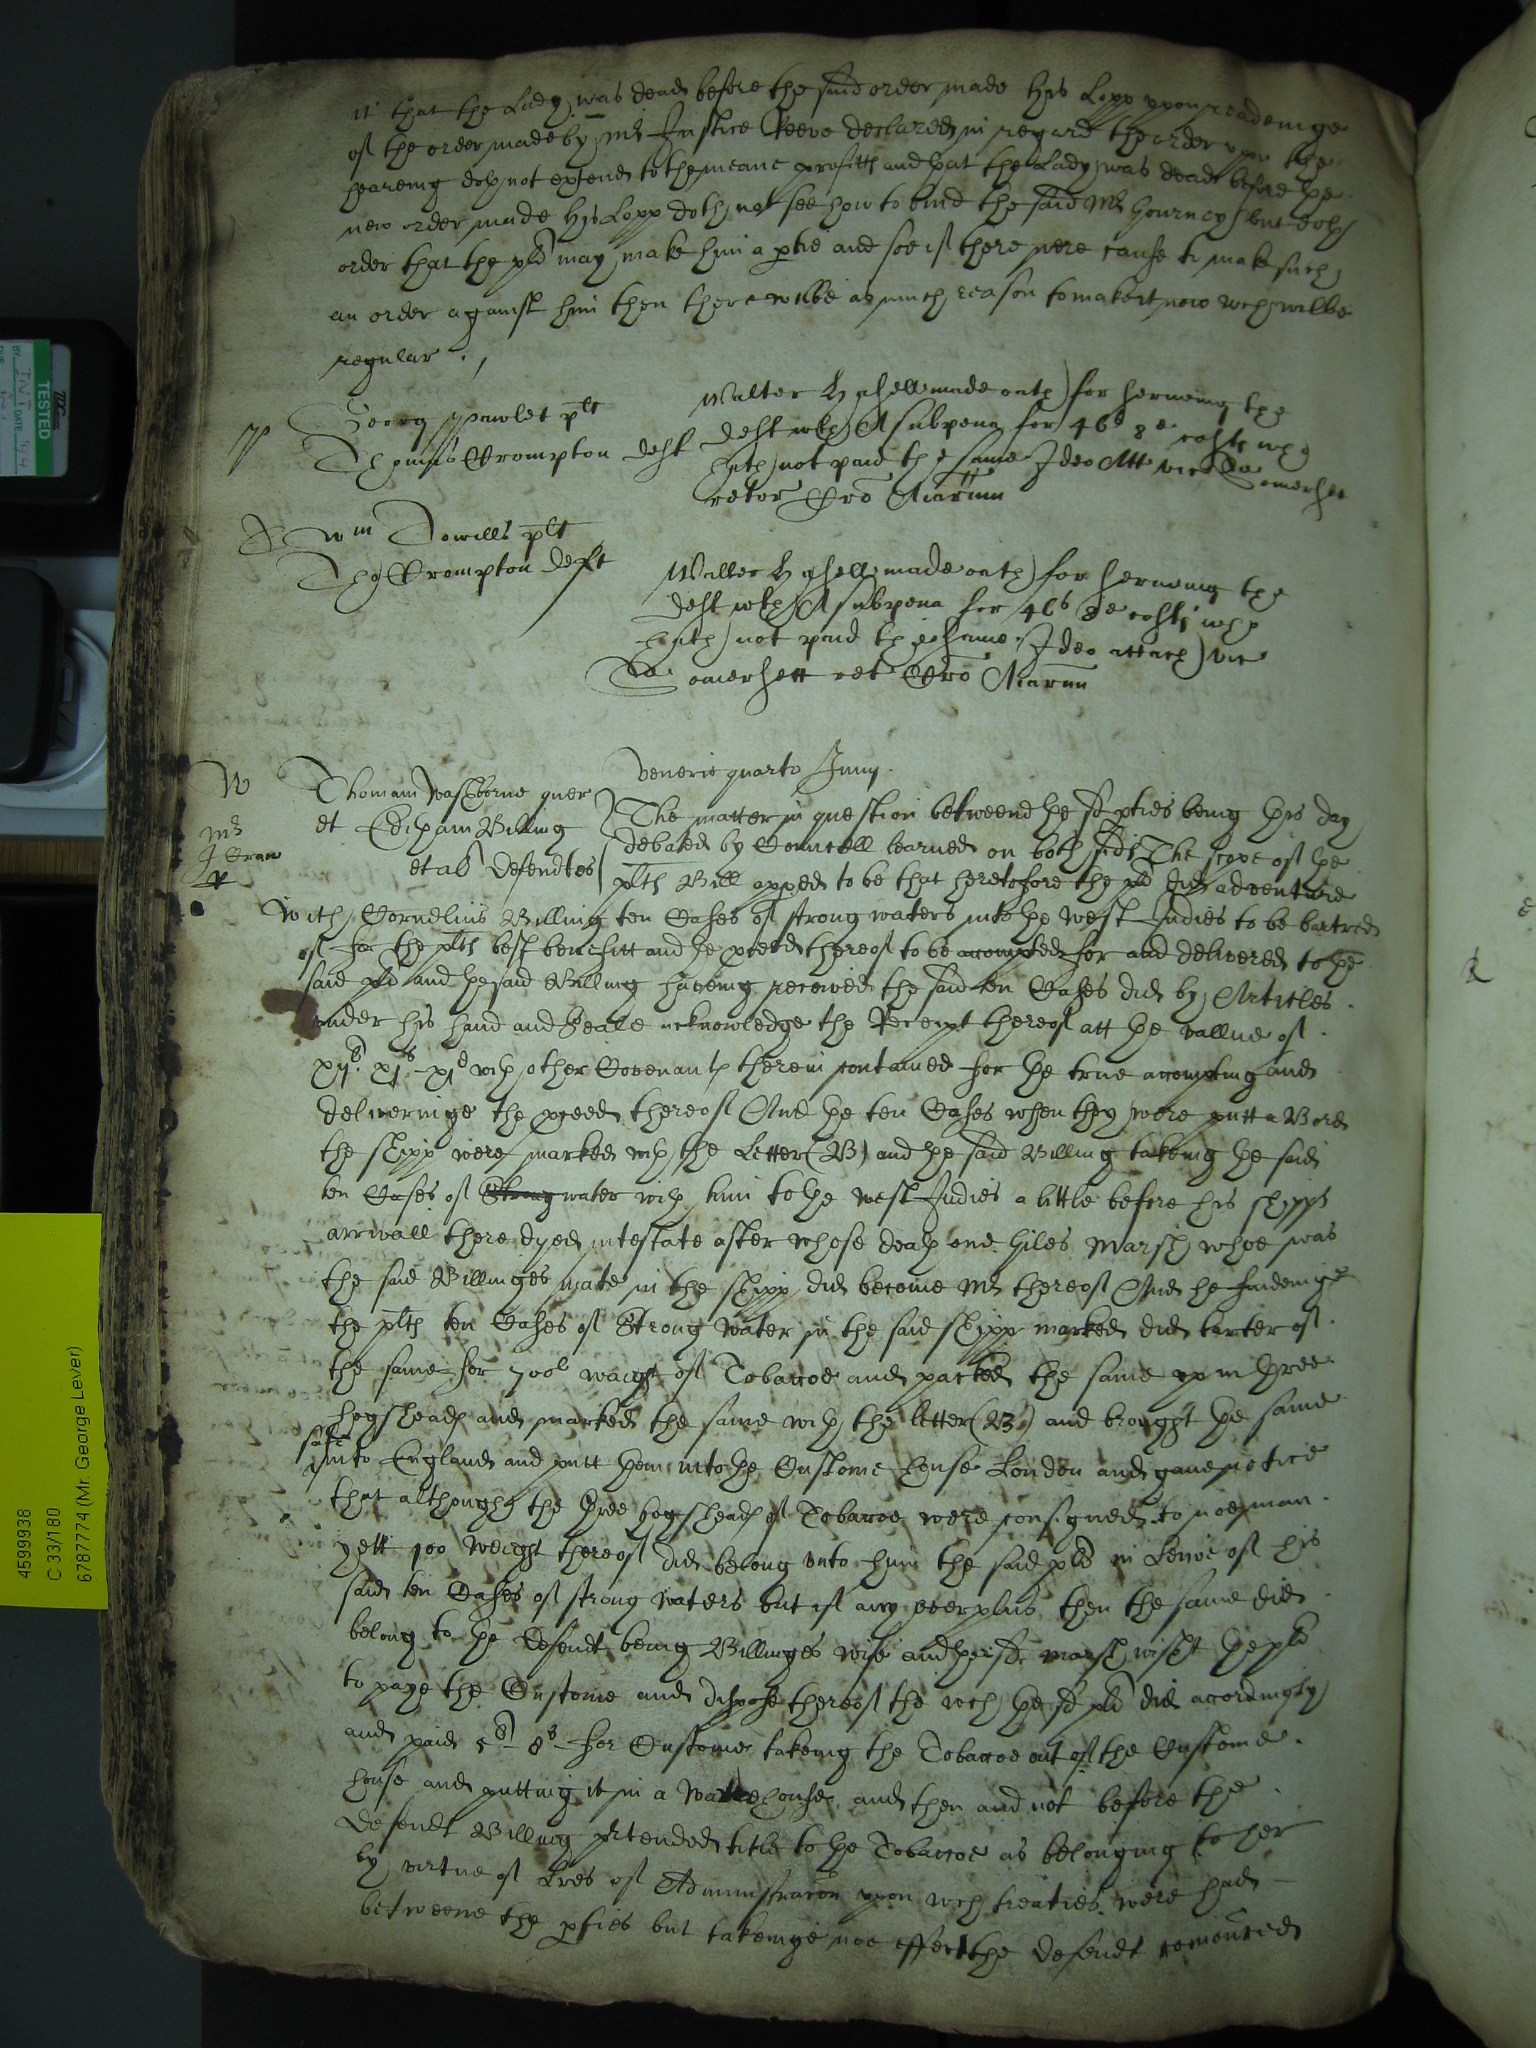 it that the Lady was dead before the said order made His Lopp upon readeinge
of the order made by Mr Justice Reeve declared in regard the order upon the
heareing doth not extend to the meane profitts and that the Lady was dead before the
new order made His Lopp doth not see how to bind the said Mr Gourney but doth
order that the plt may make him a ptie and soe if there were cause to make such
an order against him then there wilbe as much reason to make it now wch wilbe
regular
Georg Pawlet plt
Thomas Crompton deft
Walter Hashell made oath for serveing the
deft wth A subpena for 46s 8d costs wch
hath not paid the same Ideo Att vic Somerset
retor Cro Martini
Wm Powells plt
Tho Crompton deft
Walter Hashell made oath for serveing the
deft wth A subpena for 46s 8d costs wch
hath not paid the same Ideo attach vic
Somersett ret Cro Martini
Veneris quarto Junij
W
Thomam Washborne quer
et Edith am Billing
et als defendtes
The matter in question betweene the sd pties being this day
debated by Councell learned on both sides The scope of the
plts Bill appeed to be that heretofore the plt did adventure
with Cornelius Billing ten Cases of strong waters into the West Indies to be bartred
of for the plts best benefitt and the pceed thereof to be accompted for and delivered to the
said plt and the said Billing haveing received the said ten Cases did by Articles
under his hand and Seale acknowledge the Receipt thereof att the vallue of
wth other Covenants therein contained for the true accompting and
deliveringe the pceed thereof And the ten Cases when they were putt a Bord
the shipp were marked wth the Letter (B) and the said Billing takeing the said
ten Cases of Strong water with him to the West Indies a little before his shipps
arrivall there dyed intestate after whose death one Giles Marsh whoe was
the said Billinges mate in the shipp did become Mr thereof And he findeinge
the plts ten Cases of Strong Water in the said shipp marked did barter of
the same for 700l waight of Tobaccoe and packed the same up in three
hogsheads and marked the same with the letter (B) and brought the same
safe
into England and putt them into the Custome house London and gave notice
that although the three hogsheads of Tobaccoe were consigned to noe man
yett 500 weight thereof did belong unto him the said plt in Leiwe of his
said ten Cases of strong waters but if any overplus then the same did
belong to the defendt being Billinges wife and the sd Marsh wisht the plt
to paye the Custome and dispose thereof the wch the sd plt did accordingly
and paid 5l 8s for Custome takeing the Tobaccoe out of the Custome
house and putting it in a Warehouse and then and not before the
defendt Billing prtended title to the Tobaccoe as belonging to her
by virtue of Lres of Administracon upon wch treaties were had
betweene the pties but takeinge noe effect the defendt
TESTED
DATE
4599938
C 33/180
6787774 (Mr. George Lever)